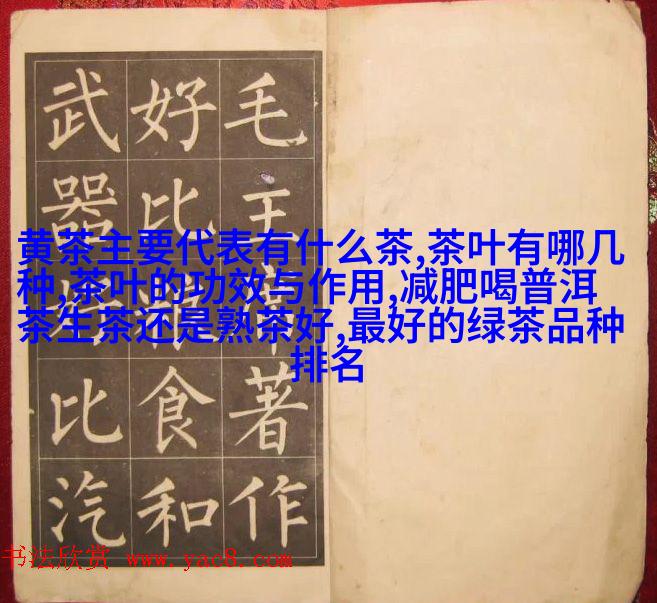 毛主著作
好比食和
武器好比汽
黄茶主要代表有什么茶,茶叶有哪几
种,茶叶的功效与作用,减肥喝普洱
茶生茶还是熟茶好,最好的绿茶品种
排名
书法欣赏 www.yac8.com